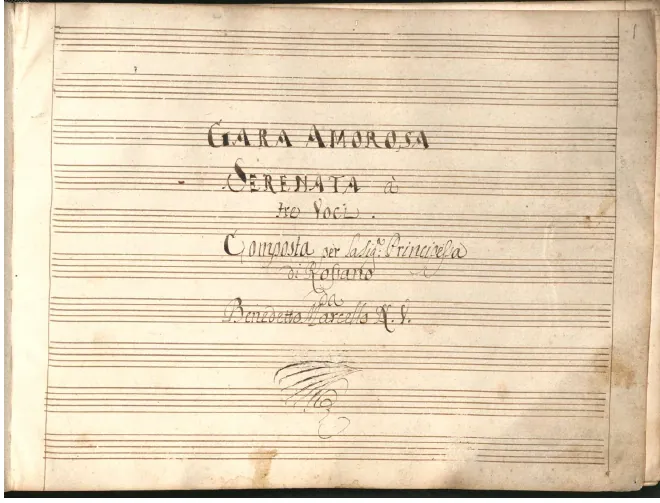 1
GARA AMOROSA
SERENATA à
tre Voci.
Composta per la Sig.ª Principessa
di Rossano
Da
Benedetto Marcello N. V.